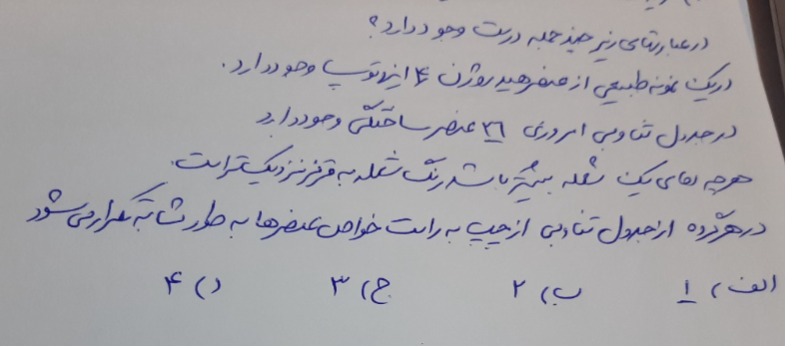 در عبارتهای زیر چند جمله درست وجود دارد؟
در یک نمونه طبیعی از عنصر هیدروژن ۴ ایزوتوپ وجود دارد.
در جدول تناوبی امروزی ۲۶ عنصر ساختگی وجود دارد
هر چه دمای یک شعله بیشتر باشد رنگ شعله به قرمز نزدیک تر است.
در هر گروه از جدول تناوبی از چپ به راست خواص عنصرها به طور مشابه تکرار می شود
الف) ۱ ب) ۲ ج) ۳ د) ۴